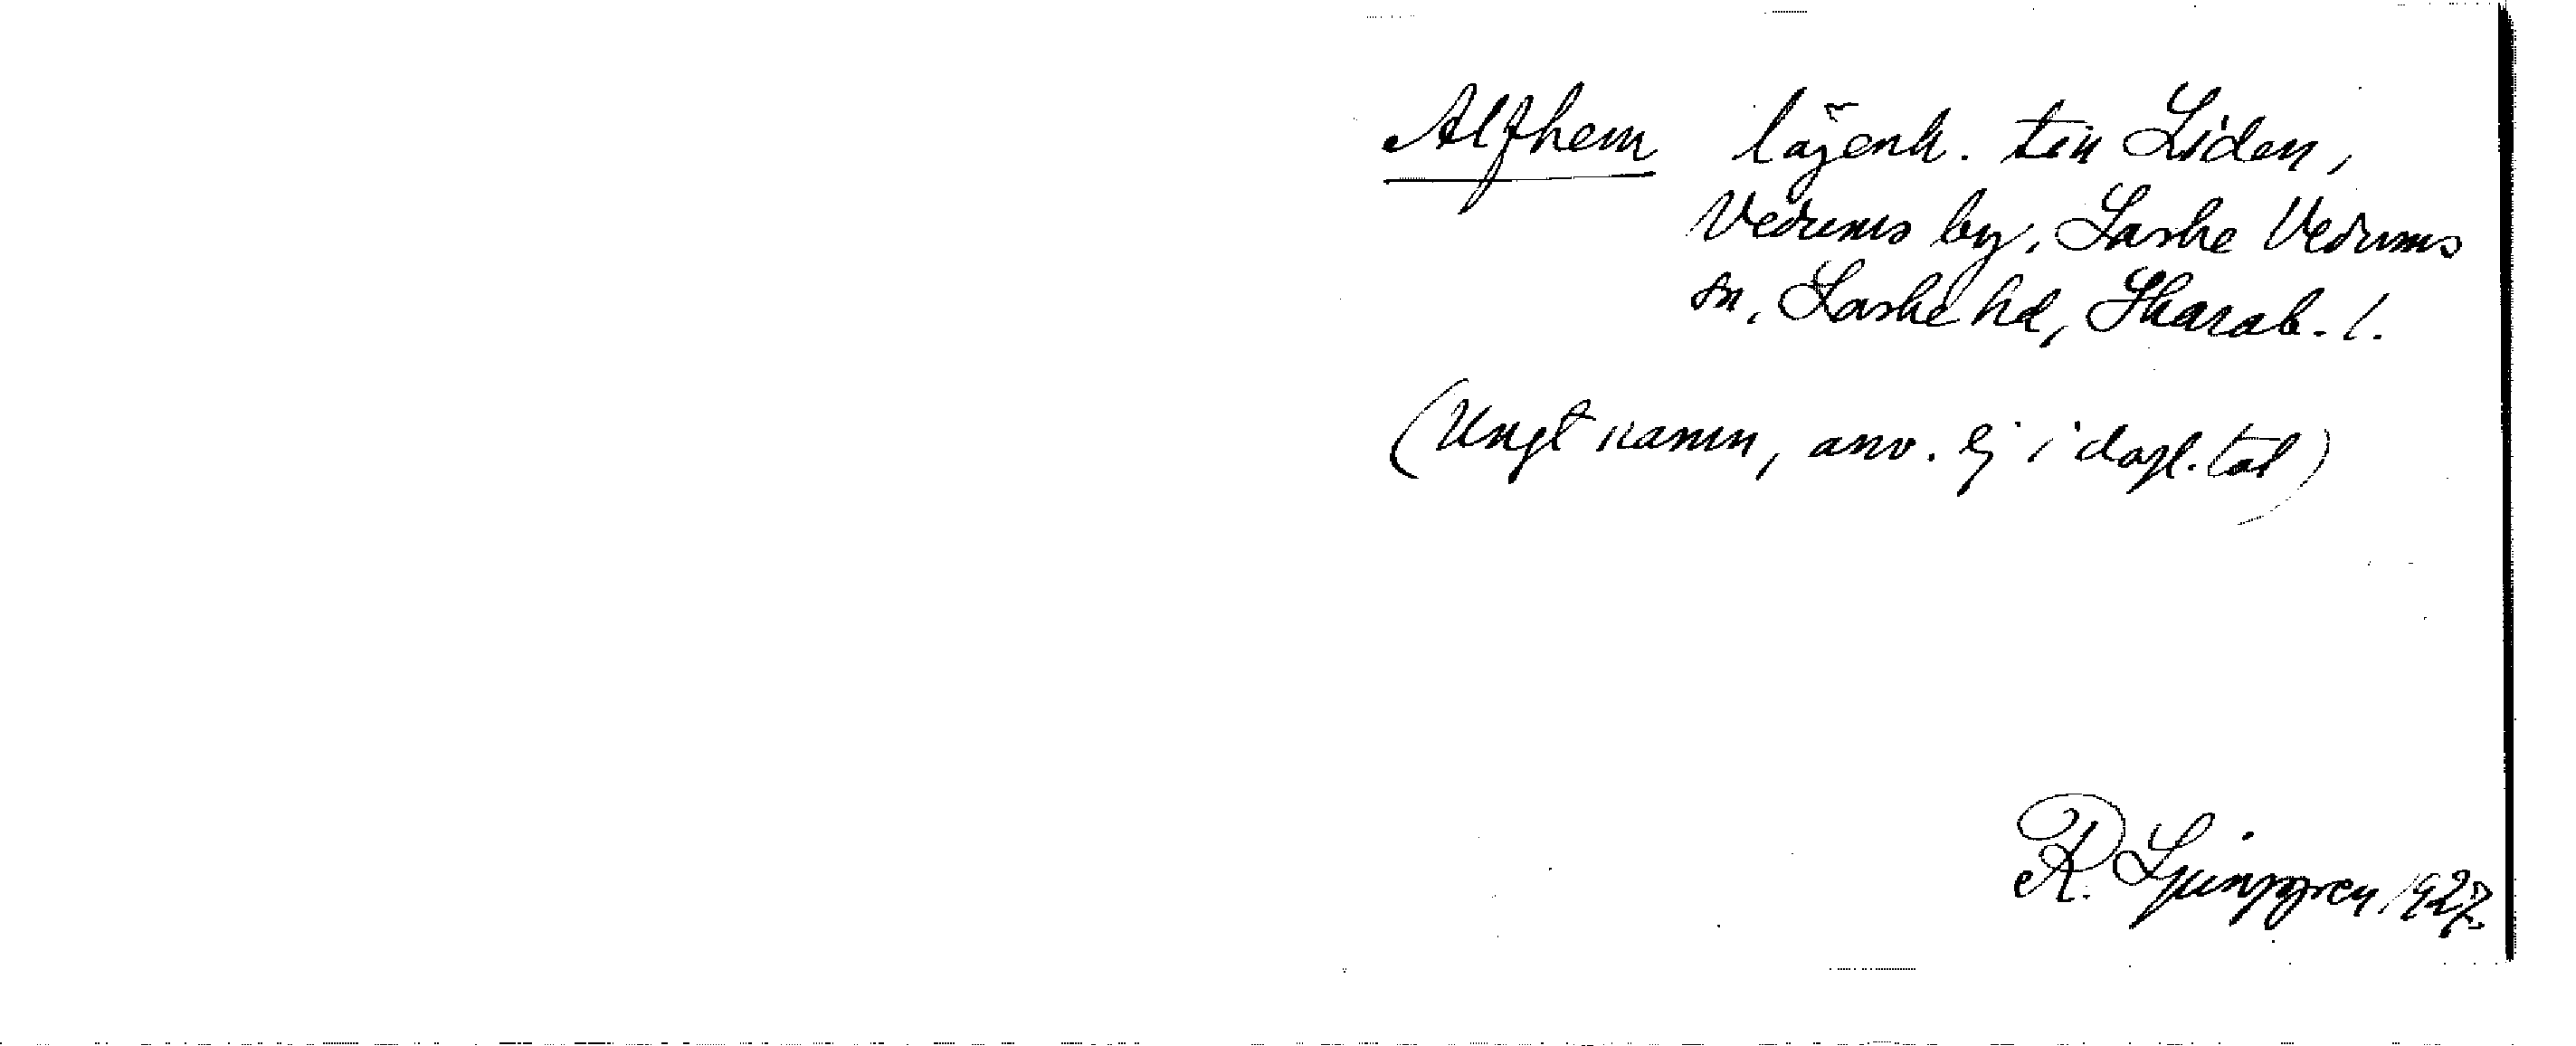 Alfhem lägenh. till Liden,
Vedums by, Laske Vedums
sn, Laske hd, Skarab. l.
(Ungt namn, anv. ej i dagl. tal)
R. Ljunggren 1927.